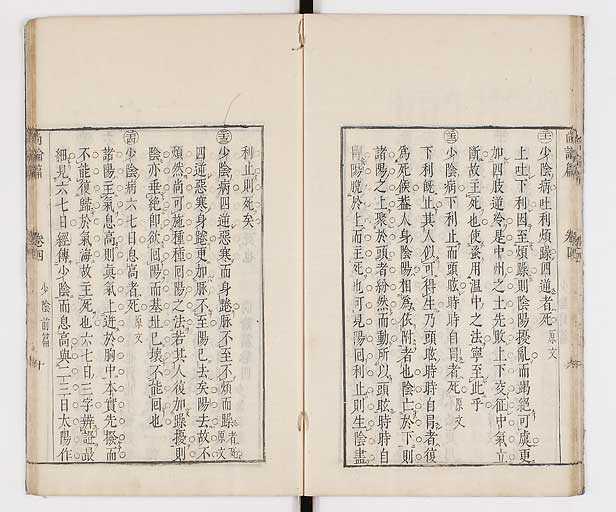 尚論篇
卷四
少陰病吐利煩躁四逆者死 原文
上吐下利因至煩躁則陰陽擾亂而竭絕可虞更
加四肢逆冷是中州之土先敗上下交征中氣立
斷故主死也使蚤用溫中之法寧至此乎
少陰病下利止而頭眩時時自冒者死 原文
下利旣止其人似可得生乃頭眩時時自冒者復
爲死候蓋人身陰陽相爲依附者也陰亡於下則
諸陽之上聚於頭者紛然而動所以頭眩時時自
冒陽脫於上而主死也可見陽回利止則生陰盡
利止則死矣
少陰病四逆惡寒而身踡脉不至不煩而躁者死原文
四逆惡寒身踡更加脉不至陽已去矣陽去故不
煩然尚可施種種回陽之法若其人復加躁擾則
陰亦垂絕卽欲回陽而基址已壞不能回也
少陰病六七日息高者死 原文
諸陽主氣息高則眞氣上逆於胸中本實先撥而
不能復歸於氣海故主死也六七日三字辨證最
細見六七日經傳少陰而息高與二三日太陽作
尚論篇
卷四
少陰前篇